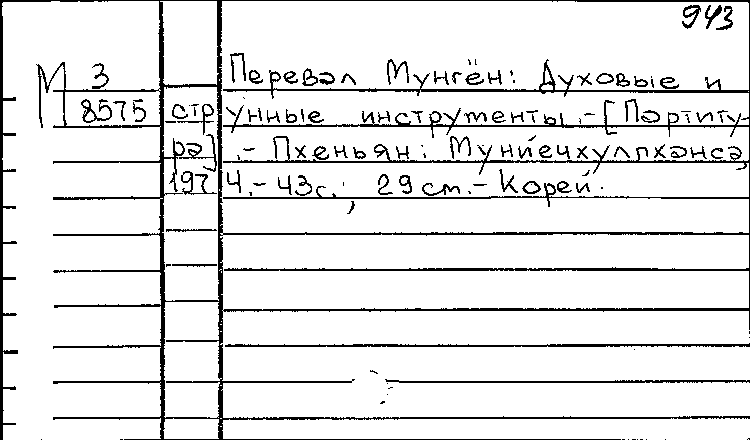 943
М 3 Перевал Мунгён: Духовые и
8575 струнные инструменты.-[Партиту-
ра].- Пхеньян: Мунйечхулпханса,
1974.- 43с.; 29см.- Корей.